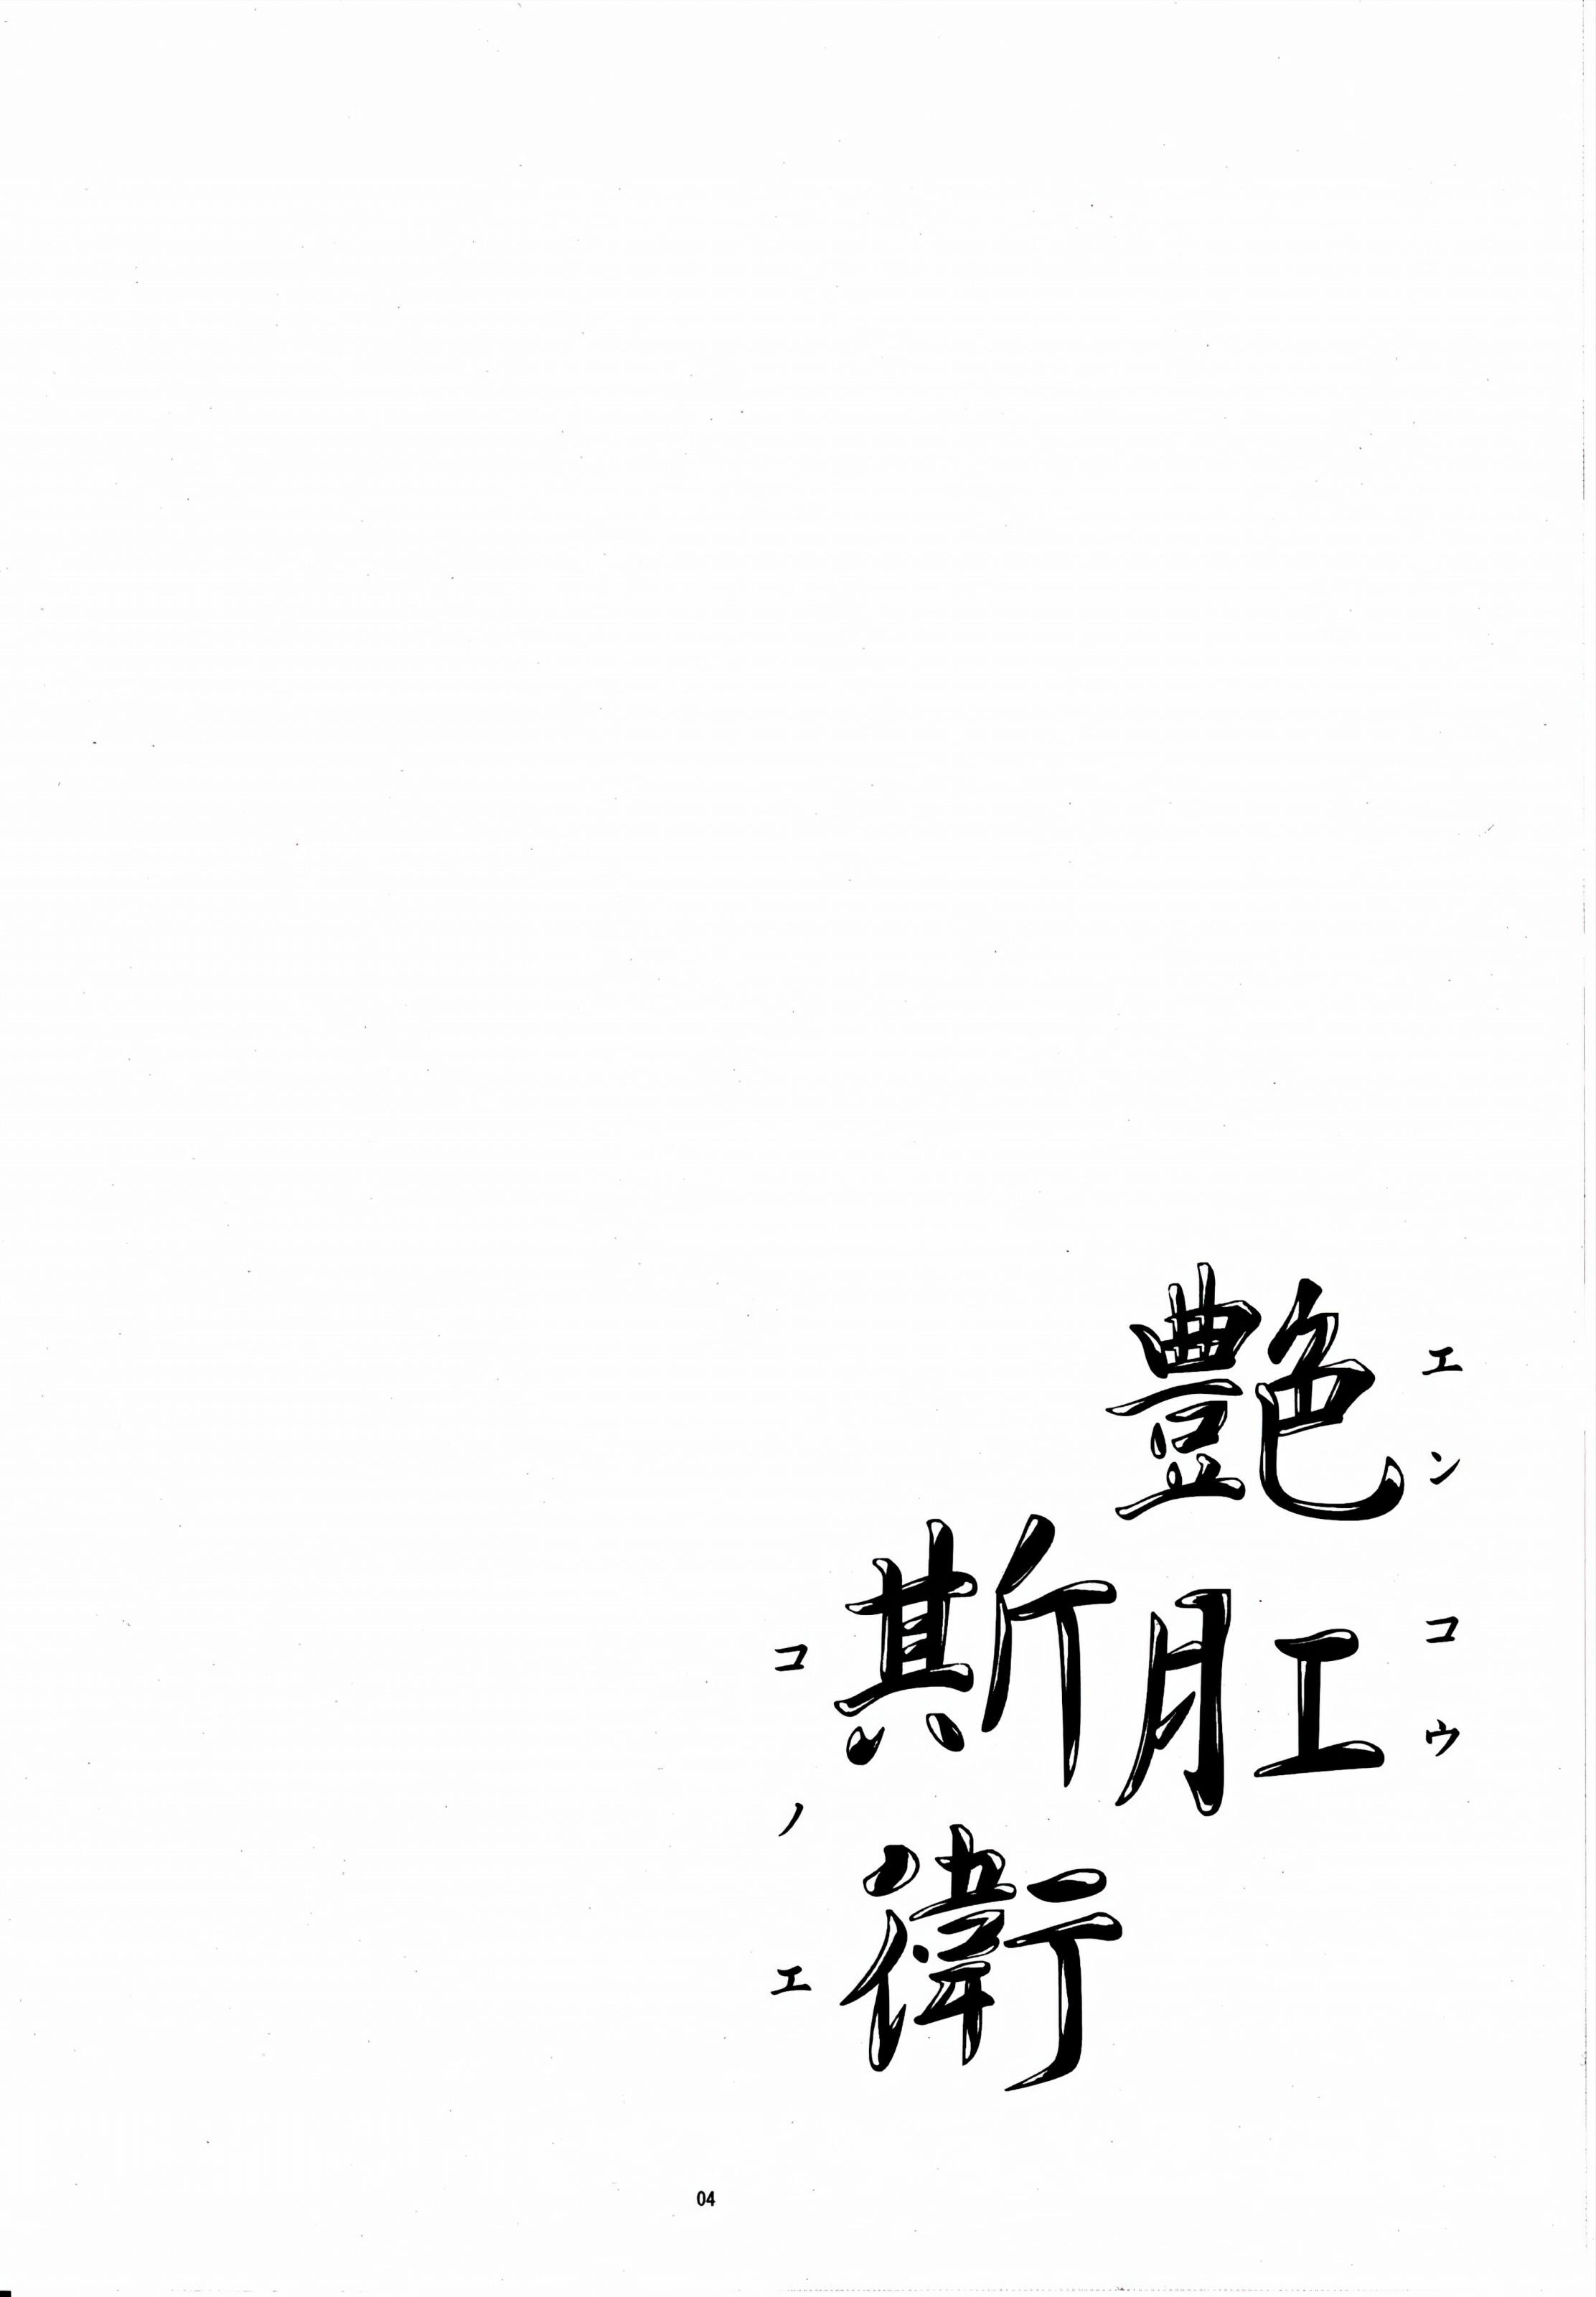 エンコウ
艶肛
斯衛
コノエ
04